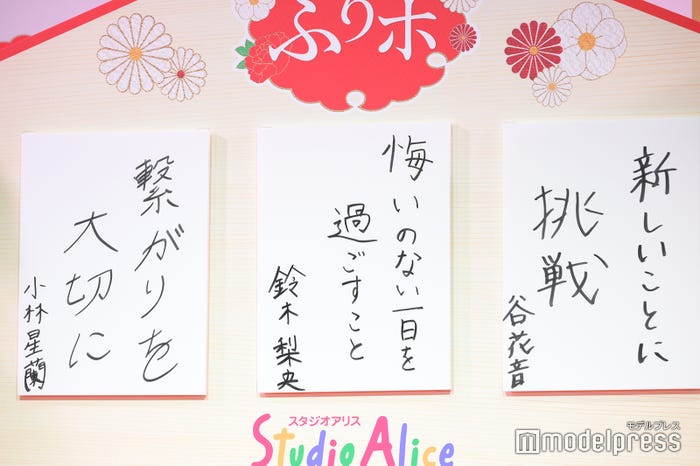 ふりホ
新しいことに
挑戦
谷花音
悔いのない一日を
過ごすこと
鈴木梨央
繋がりを
大切に
小林星蘭
スタジオアリス
Studio Alice
モデルプレス
modelpress